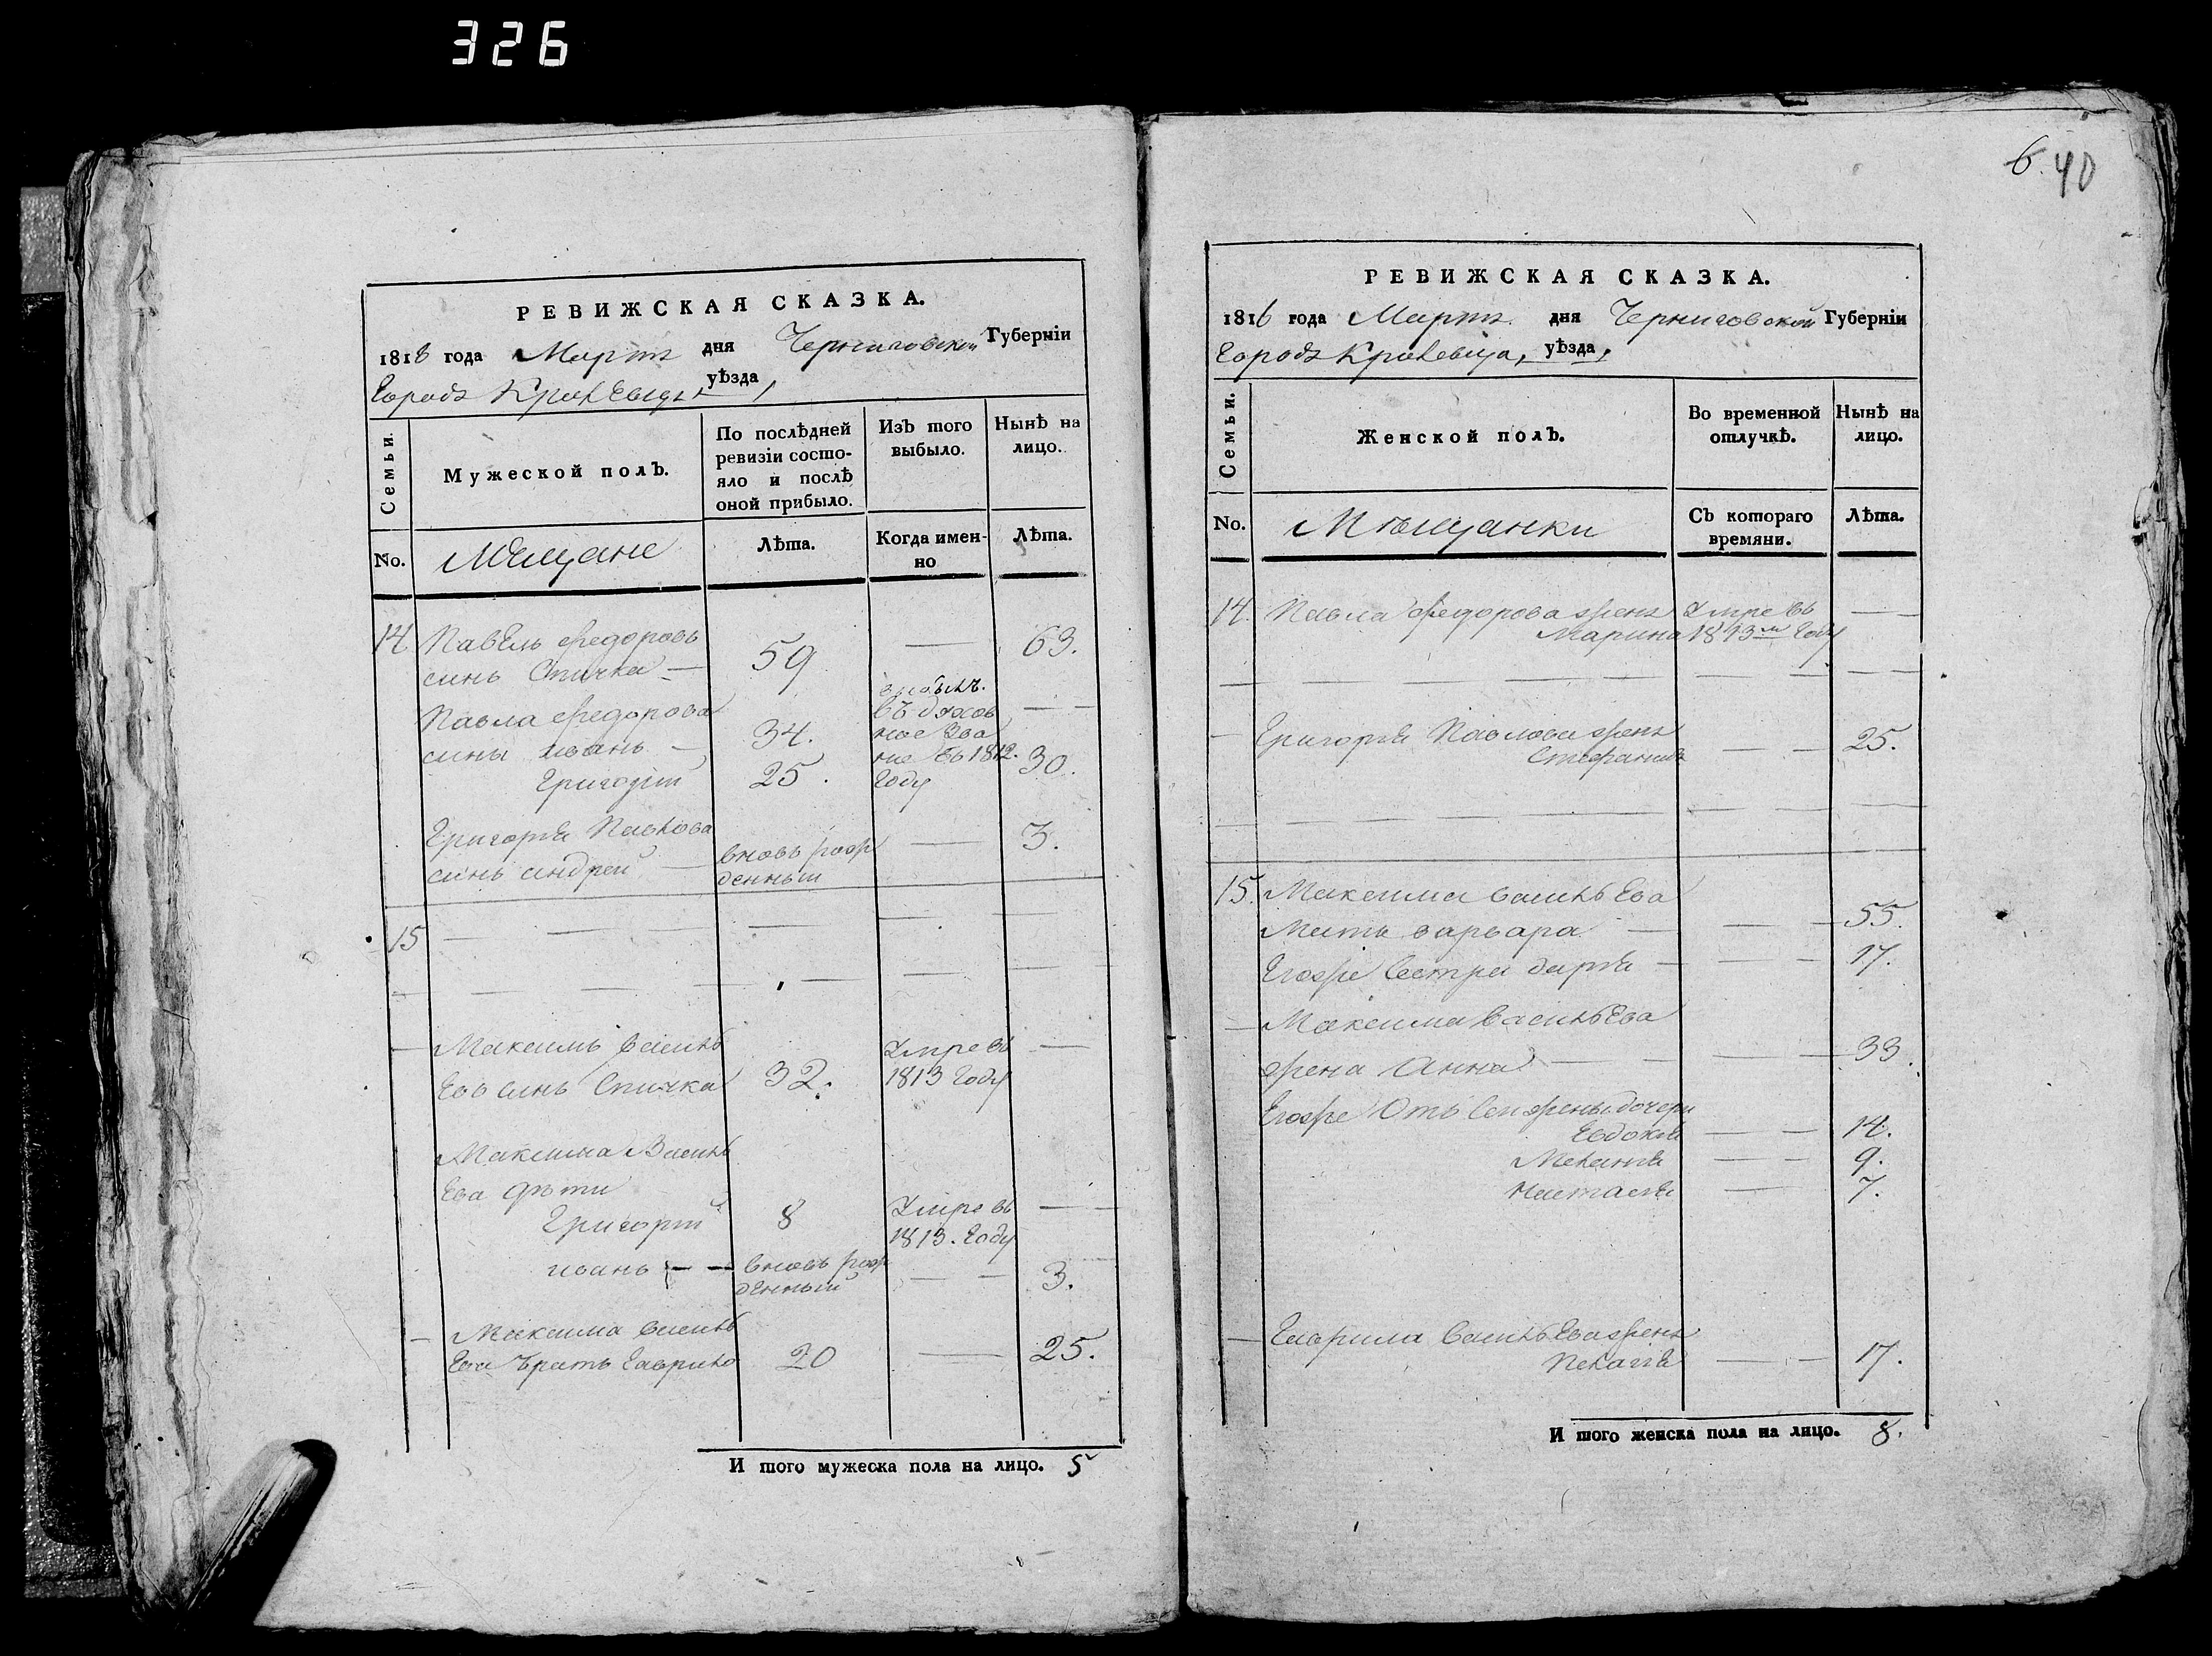 326
РЕВИЖСКАЯ СКАЗКА.
1816 года Мартъ дня Черниговской Губерніи
Городъ Кролевецъ, уѣзда,
Семьи.
Мужеской полъ.
По послѣдней ревизіи состо-
яло и послѣ
оной прибыло.
Изъ того
выбыло.
Нынѣ на
лицо.
No.
Мещане
Лѣта.
Когда имен-
но
Лѣта.
14 Павелъ Федоровъ
синъ Спичка — 59 — 63.
Павла Федорова
сины иванъ — 34. выбылъ.
въ духов
ное зва
ние въ 1812.
году — —
Григорій 25. 30.
Григорія Павлова
синъ андрей — вновь рож
денный — 3.
15 — — — — —
— — — — — —
— Максимъ василь
евъ синъ Спичка 32. Умре въ
1813 году —
Максима Василь
ева дѣти
Григорій 8 Умре въ
1813. Году — —
иванъ — — вновь рож
денный — — 3.
— Максима василь
ева братъ гаврило 20 — 25.
И того мужеска пола на лицо. 5
6. 40
РЕВИЖСКАЯ СКАЗКА.
1816 года Мартъ. дня Черниговской Губерніи
Городъ Кролевецъ, уѣзда,
Семьи.
Женской полъ.
Во временной
отлучкѣ.
Нынѣ на
лицо.
No.
Мѣщанки
Съ котораго
времяни.
Лѣта.
14. Павла Федорова жена
Марина Умре въ
1813м году — —
— — — — — — — —
— Григорія Павлова жена
Стефанида — — 25.
— — — — — — — —
15. Максима васильева
Мать варвара — — — 55.
Егоже Сестра дарія — — — 17.
— Максима васильева
жена Анна — — — — 33.
Егоже Отъ сей жены дочери
Евдокія — — 14.
Меланія — — 9.
Настасія — 7.
— Гаврила Васильева жена
Пелагія — — 17.
И того женска пола на лицо. 8.